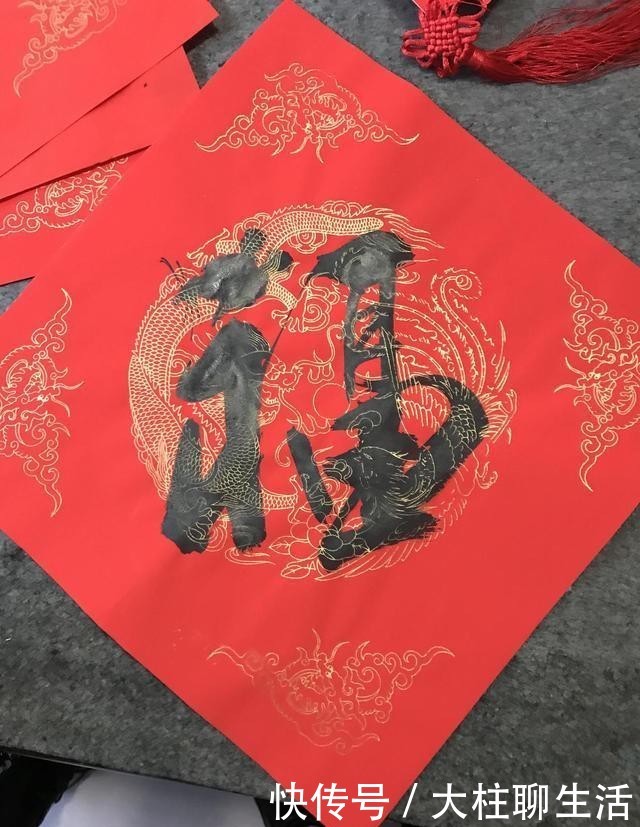 福
快传号/大柱聊生活